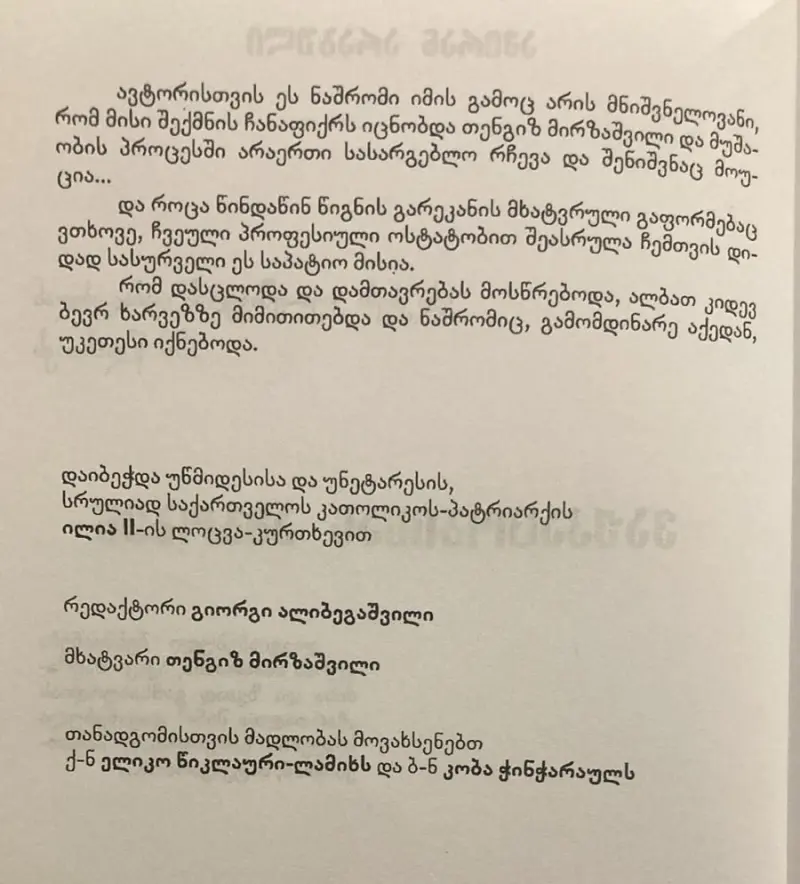 ავტორისთვის ეს ნაშრომი იმის გამოც არის მნიშვნელოვანი,
რომ მისი შექმნის ჩანაფიქრს იცნობდა თენგიზ მირზაშვილი და მუშა-
ობის პროცესში არაერთი სასარგებლო რჩევა და შენიშვნაც მოუ-
ცია...
და როცა წინდაწინ წიგნის გარეკანის მხატვრული გაფორმებაც
ვთხოვე, ჩვეული პროფესიული ოსტატობით შეასრულა ჩემთვის დი-
დად სასურველი ეს საპატიო მისია.
რომ დასცლოდა და დამთავრებას მოსწრებოდა, ალბათ კიდევ
ბევრ ხარვეზზე მიმითითებდა და ნაშრომიც, გამომდინარე აქედან,
უკეთესი იქნებოდა.
დაიბეჭდა უწმიდესისა და უნეტარესის,
სრულიად საქართველოს კათოლიკოს-პატრიარქის
ილია II-ის ლოცვა-კურთხევით
რედაქტორი გიორგი ალიბეგაშვილი
მხატვარი თენგიზ მირზაშვილი
თანადგომისთვის მადლობას მოვახსენებთ
ქ-ნ ელიკო წიკლაური-ლამიხს და ბ-ნ კობა ჭინჭარაულს